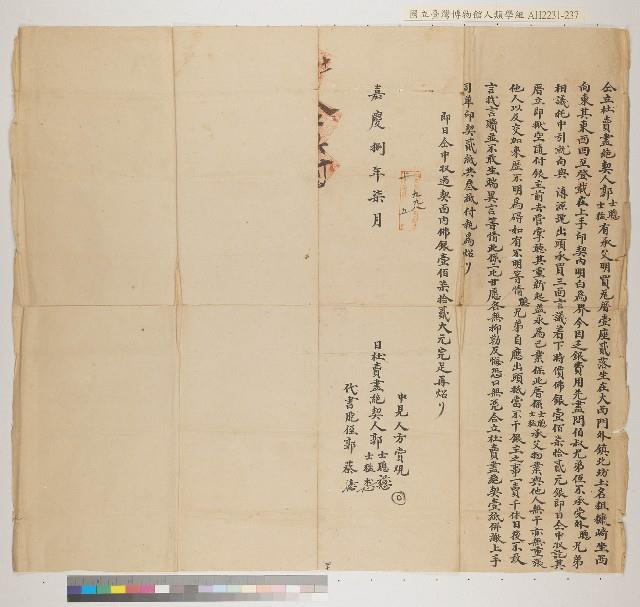 國立臺灣博物館人類學組 AH2231-237
仝立杜賣盡絶契人郭士聰士猛有承父明買瓦厝壹座貳落坐在大西門外鎮北坊土名粗糠崎坐西
向東其東西四至登載在上手印契內明白為界今因乏銀費用先盡問伯叔兄弟侄不承受外聰兄弟
相議托中引就向與 源 出頭承買三面言議着下時價佛銀壹佰柒拾貳大元銀即日仝中收訖其
厝立即搬空隨付銀主前去管掌聽其重新起盖永為己業保此厝係士聰士猛承父物業與他人無干亦無重張
他人以及交加來歷不明為碍如有不明等情聰兄弟自應出頭抵當不干銀主之事一賣千休日後不敢
言找言贖並不敢生端異言等情此係二比甘愿各無抑勒反悔恐口無凭仝立杜賣盡絶契壹紙併繳上手
司單印契貳紙共叁紙付執為炤
即日仝中收過契面內佛銀壹佰柒拾貳大元完足再炤
嘉慶捌年柒月 日杜賣盡絶契人郭士聰士猛
中見人方賞
代書胞侄郭